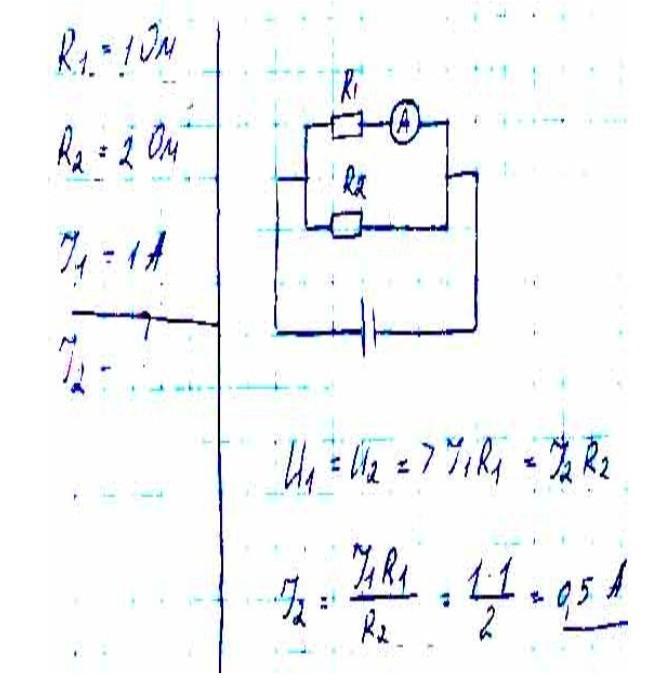 R₁ = 1 Ом
R₂ = 2 Ом
I₁ = 1 А
I₂ -
R₁
А
R₂
U₁ = U₂ => I₁R₁ = I₂R₂
I₂ = I₁R₁/R₂ = 1·1/2 = 0,5 А